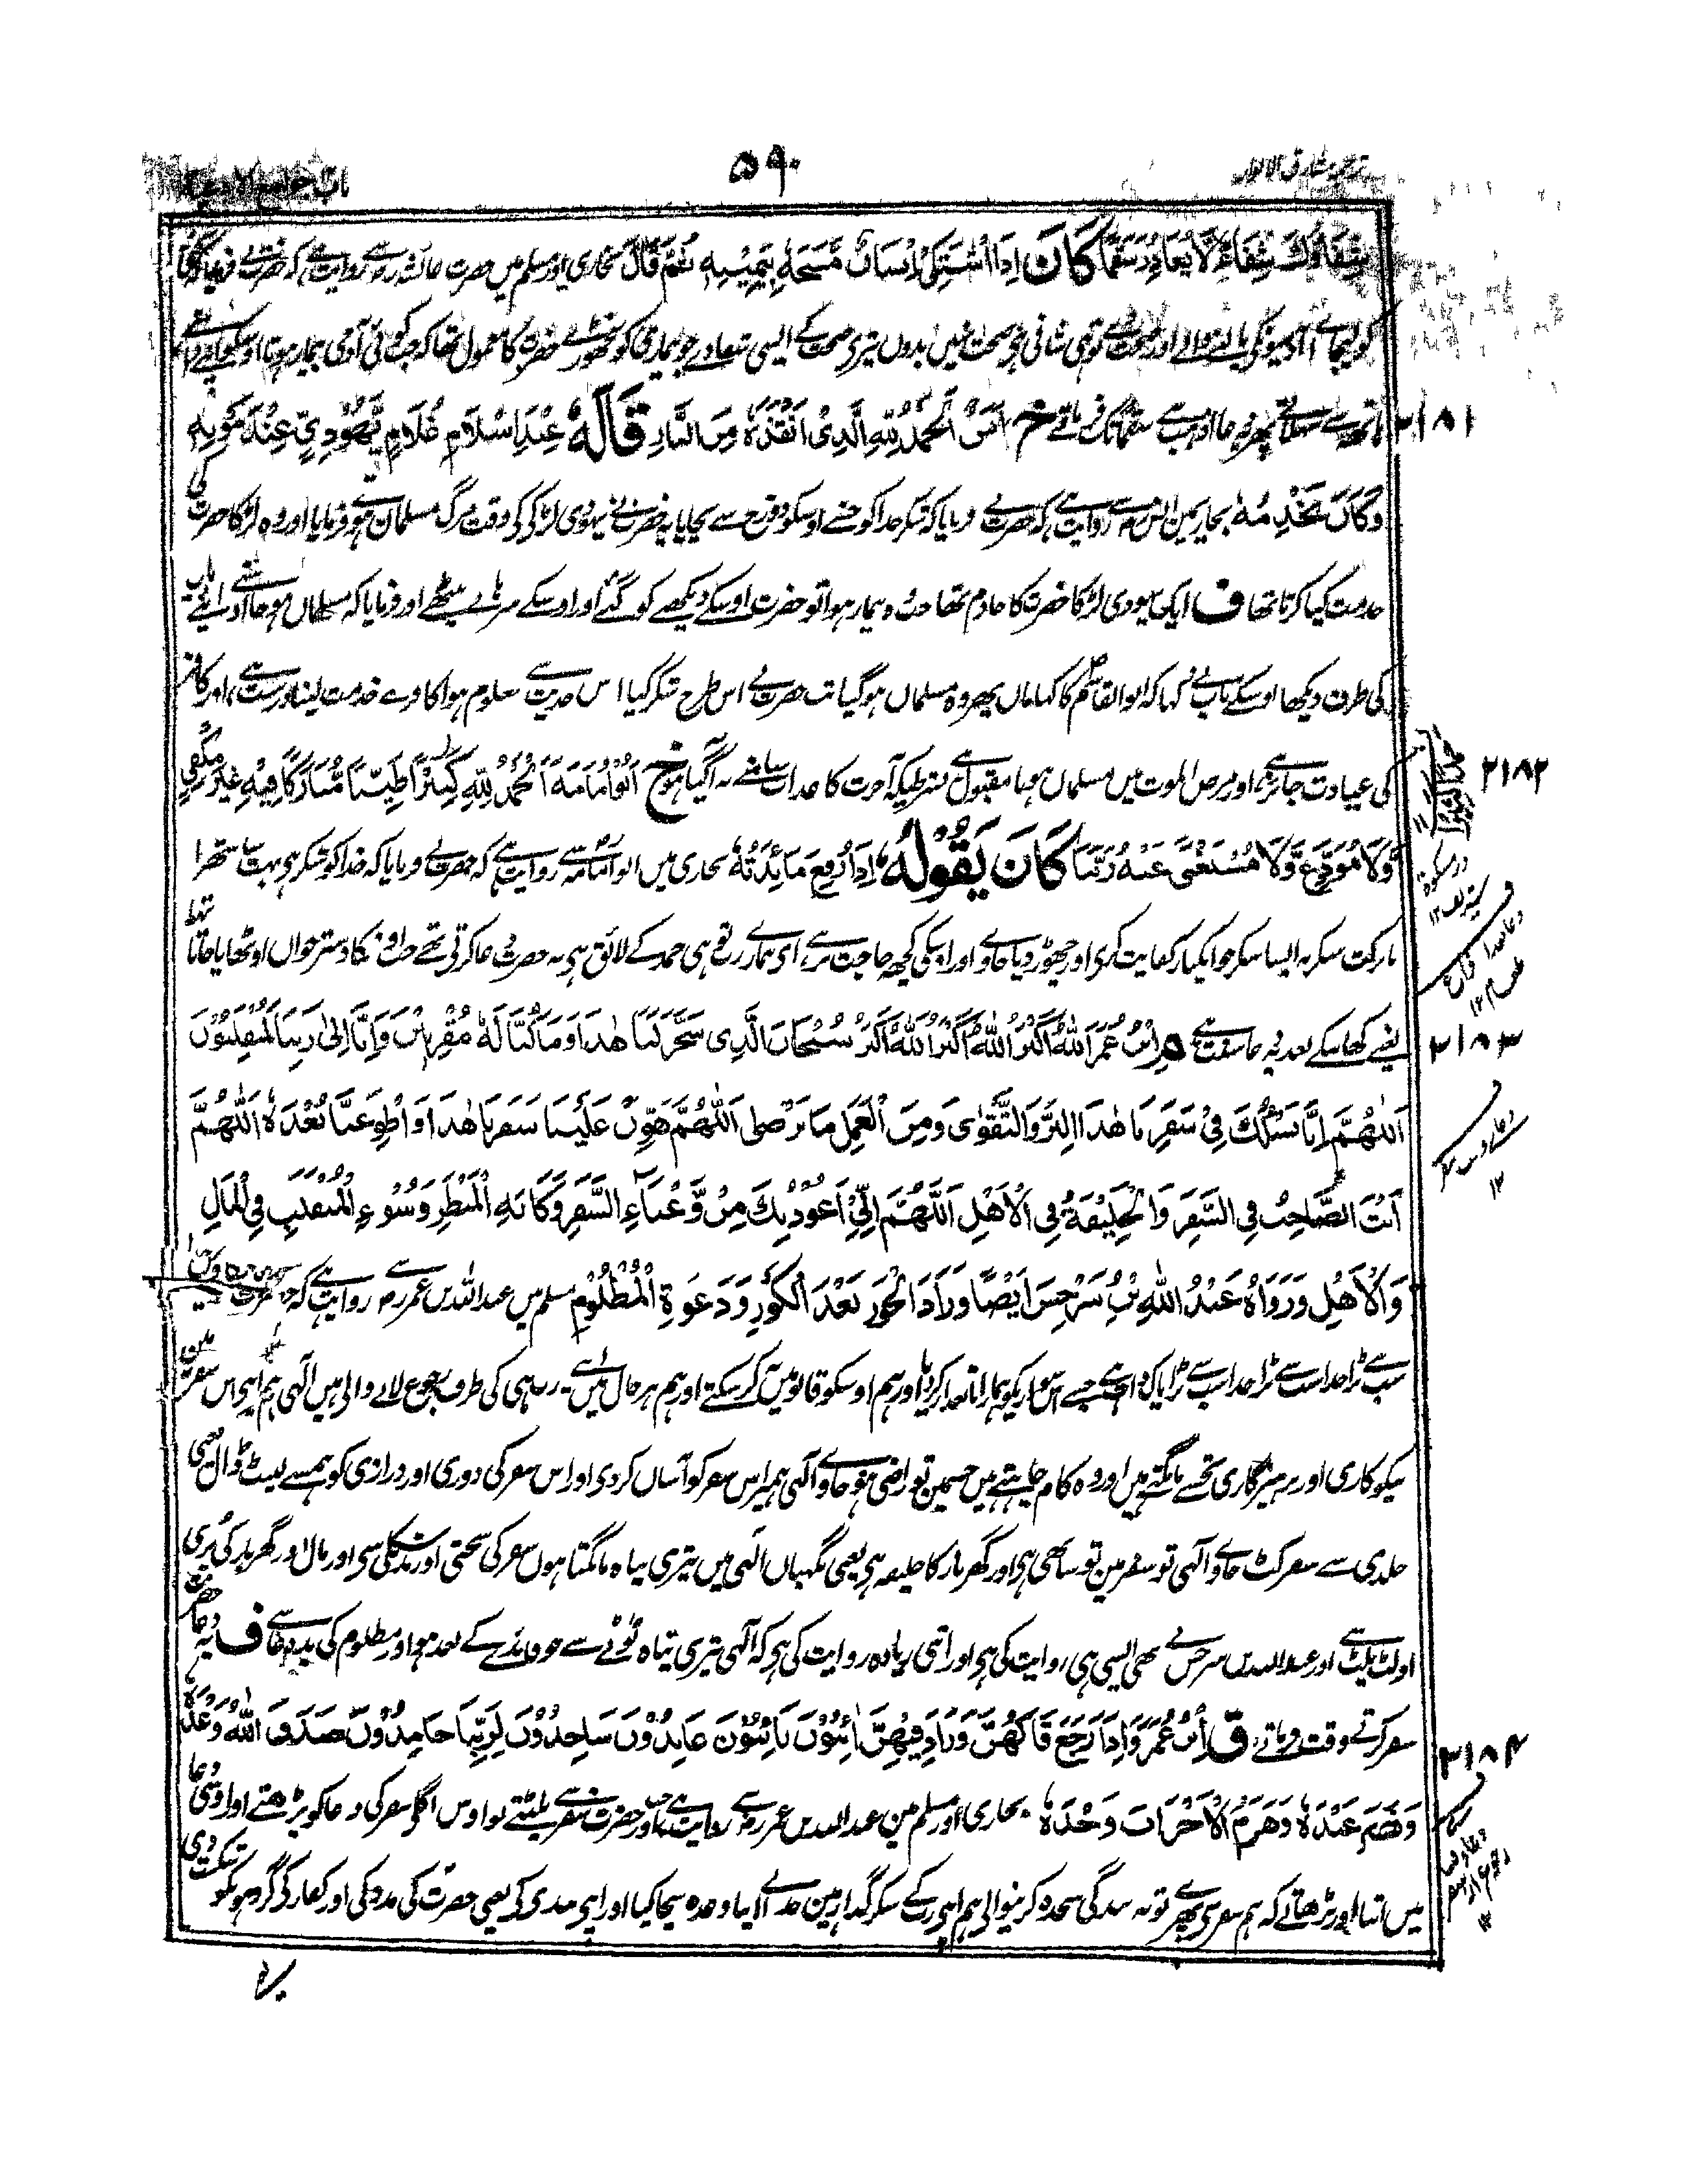 ترجمہ مشارق الانوار
۵۹۰
باب جوامع الادعیہ
شِفَاؤُكَ شِفَاءً لَا يُغَادِرُ سَقَمًا كَانَ اِذَا اشْتَكٰى اِنْسَانٌ مَسَحَهٗ بِيَمِيْنِهٖ ثُمَّ قَالَ بخاری اور مسلم میں حضرت عائشہ رض سے روایت ہے کہ حضرت نے فرمایا
کو اے آدمیونکی پالنے والے اور صحت دے توہی شافی ہی صحت نہیں بدوں تیری صحت کے ایسی شفا دے جو بیماری کو نچھوڑے حضرت کا معمول تھا کہ جب کوئی آدمی بیمار ہوتا اوسکو اپنے داہنے
ہاتھہ سے سہلاتے پھر یہ دعا سقما تک فرماتے خ اَنَسٌ اَلْحَمْدُ لِلّٰهِ الَّذِىْ اَنْقَذَهٗ مِنَ النَّارِ قَالَهٗ عِنْدَ اِسْلَامِ غُلَامٍ يَهُوْدِيٍّ عِنْدَ مَوْتِهٖ
۲۱۸۱
وَكَانَ يَخْدِمُهٗ بخاری میں انس رض سے روایت ہے کہ حضرت نے فرمایا کہ شکر خدا کو جسنے اوسکو دوزخ سے بچایا یہ حضرت نے یہودی لڑکی کی وقت مرگ مسلمان ہونے فرمایا اور وہ لڑکا حضرت کی
خدمت کیا کرتا تھا ف ایک یہودی لڑکا حضرت کا خادم تھا جب وہ بیمار ہوا تو حضرت اوسکے دیکھنے کو گئے اور اوسکے سرہانے بیٹھے اور فرمایا کہ مسلمان ہو جا اوسنے اپنے باپ
کی طرف دیکھا اوسکے باپ نے کہا کہ ابوالقاسم کا کہا مان پھر وہ مسلمان ہوگیا تب حضرت نے اس طرح شکر کیا اس حدیث سے معلوم ہوا کافر سے خدمت لینا درست ہے اور کافر
کی عیادت جائز ہے اور مرض الموت میں مسلمان ہونا مقبول ہے بشرطیکہ آخرت کا عذاب سامنے نہ آگیا ہو خ اَبُوْ اُمَامَةَ اَلْحَمْدُ لِلّٰهِ كَثِيْرًا طَيِّبًا مُّبَارَكًا فِيْهِ غَيْرَ مَكْفِيٍّ
۲۱۸۲
وَّلَا مُوَدَّعٍ وَّلَا مُسْتَغْنًى عَنْهُ رَبَّنَا كَانَ يَقُوْلُهٗ اِذَا رُفِعَ مَائِدَتُهٗ بخاری میں ابو امامہ سے روایت ہے کہ حضرت نے فرمایا کہ خدا کو شکر ہی بہت سا ستھرا
بارکت شکر نہ ایسا شکر جو ایکبار کفایت کری اور چھوڑ دیا جاوے اور اوسکی کچھہ حاجت نرہے ای ہمارے رب تو ہی حمد کے لائق ہی یہ حضرت دعا کرتی تھے جب اونکا دسترخوان اوٹھایا جاتا تھا
یعنے کھانیکے بعد یہ دعا سنت ہے م اِبْنُ عُمَرَ اَللّٰهُ اَكْبَرُ اَللّٰهُ اَكْبَرُ اَللّٰهُ اَكْبَرُ سُبْحَانَ الَّذِى سَخَّرَ لَنَا هٰذَا وَمَا كُنَّا لَهٗ مُقْرِنِيْنَ وَاِنَّا اِلٰى رَبِّنَا لَمُنْقَلِبُوْنَ
۲۱۸۳
اَللّٰهُمَّ اِنَّا نَسْئَلُكَ فِىْ سَفَرِنَا هٰذَا الْبِرَّ وَالتَّقْوٰى وَمِنَ الْعَمَلِ مَا تَرْضٰى اَللّٰهُمَّ هَوِّنْ عَلَيْنَا سَفَرَنَا هٰذَا وَاطْوِ عَنَّا بُعْدَهٗ اَللّٰهُمَّ
اَنْتَ الصَّاحِبُ فِى السَّفَرِ وَالْخَلِيْفَةُ فِى الْاَهْلِ اَللّٰهُمَّ اِنِّيْ اَعُوْذُ بِكَ مِنْ وَّعْثَاءِ السَّفَرِ وَكَاٰبَةِ الْمَنْظَرِ وَسُوْءِ الْمُنْقَلَبِ فِى الْمَالِ
وَالْاَهْلِ وَرَوَاهُ عَبْدُ اللّٰهِ بْنُ سَرْجِسَ اَيْضًا وَزَادَ الْحَوْرَ بَعْدَ الْكَوْرِ وَدَعْوَةِ الْمَظْلُوْمِ مسلم میں عبداللہ بن عمر رض سے روایت ہے کہ حضرت
سب سے بڑا خدا سب سے بڑا خدا سب سے بڑا پاک ذات ہے جسنے اس سواریکو ہمارا تابعدار کردیا اور ہم اوسکو قابو میں نکر سکتے اور ہم ہر حال میں اپنے رب ہی کی طرف رجوع لانے والی ہیں الٰہی ہم اپنی اس سفر میں
نیکوکاری اور پرہیزگاری تجھے مانگتے ہیں اور وہ کام چاہتے ہیں جسمین تو راضی ہو جاوے الٰہی ہمپر اس سفر کو آسان کردی اور اس سفر کی دوری اور درازی کو ہمسے لپیٹ ڈال یعنی
جلدی سے سفر کٹ جاوے الٰہی تو سفر مین تو ساتھی ہی اور گھر بار کا خلیفہ ہی یعنی نگہبان الٰہی میں تیری پناہ مانگتا ہوں سفر کی سختی اور بدشکلی سی اور مال اور گھر بار کی بری
اولٹ پلٹ سے اور عبداللہ بن سرجس نے بھی ایسی ہی روایت کی ہی اور اتنی زیادہ روایت کی ہی کہ الٰہی تیری پناہ ٹوٹے سے جو فائدے کے بعد ہو اور مظلوم کی بددعا سے ف یہ دعا حضرت
سفر کرتے وقت فرماتے ق اِبْنُ عُمَرَ وَاِذَا رَجَعَ قَالَهُنَّ وَزَادَ فِيْهِنَّ اٰئِبُوْنَ تَائِبُوْنَ عَابِدُوْنَ سَاجِدُوْنَ لِرَبِّنَا حَامِدُوْنَ صَدَقَ اللّٰهُ وَعْدَهٗ
۲۱۸۴
وَنَصَرَ عَبْدَهٗ وَهَزَمَ الْاَحْزَابَ وَحْدَهٗ بخاری اور مسلم مین عبداللہ بن عمر رض سے روایت ہے اور جب حضرت سفر سے پلٹتے تو اوس اگلی سفر کی دعا کو پڑھتے اور اوسی دعا
میں اتنا اور بڑھاتے کہ ہم سفر سی پھرے توبہ بندگی سجدہ کرنیوالی ہم اپنی رب کے شکر گذار ہین خدا نے اپنا وعدہ سچا کیا اور اپنی بندی کی یعنی حضرت کی مدد کی اور کفار کی گروہونکو شکست دی